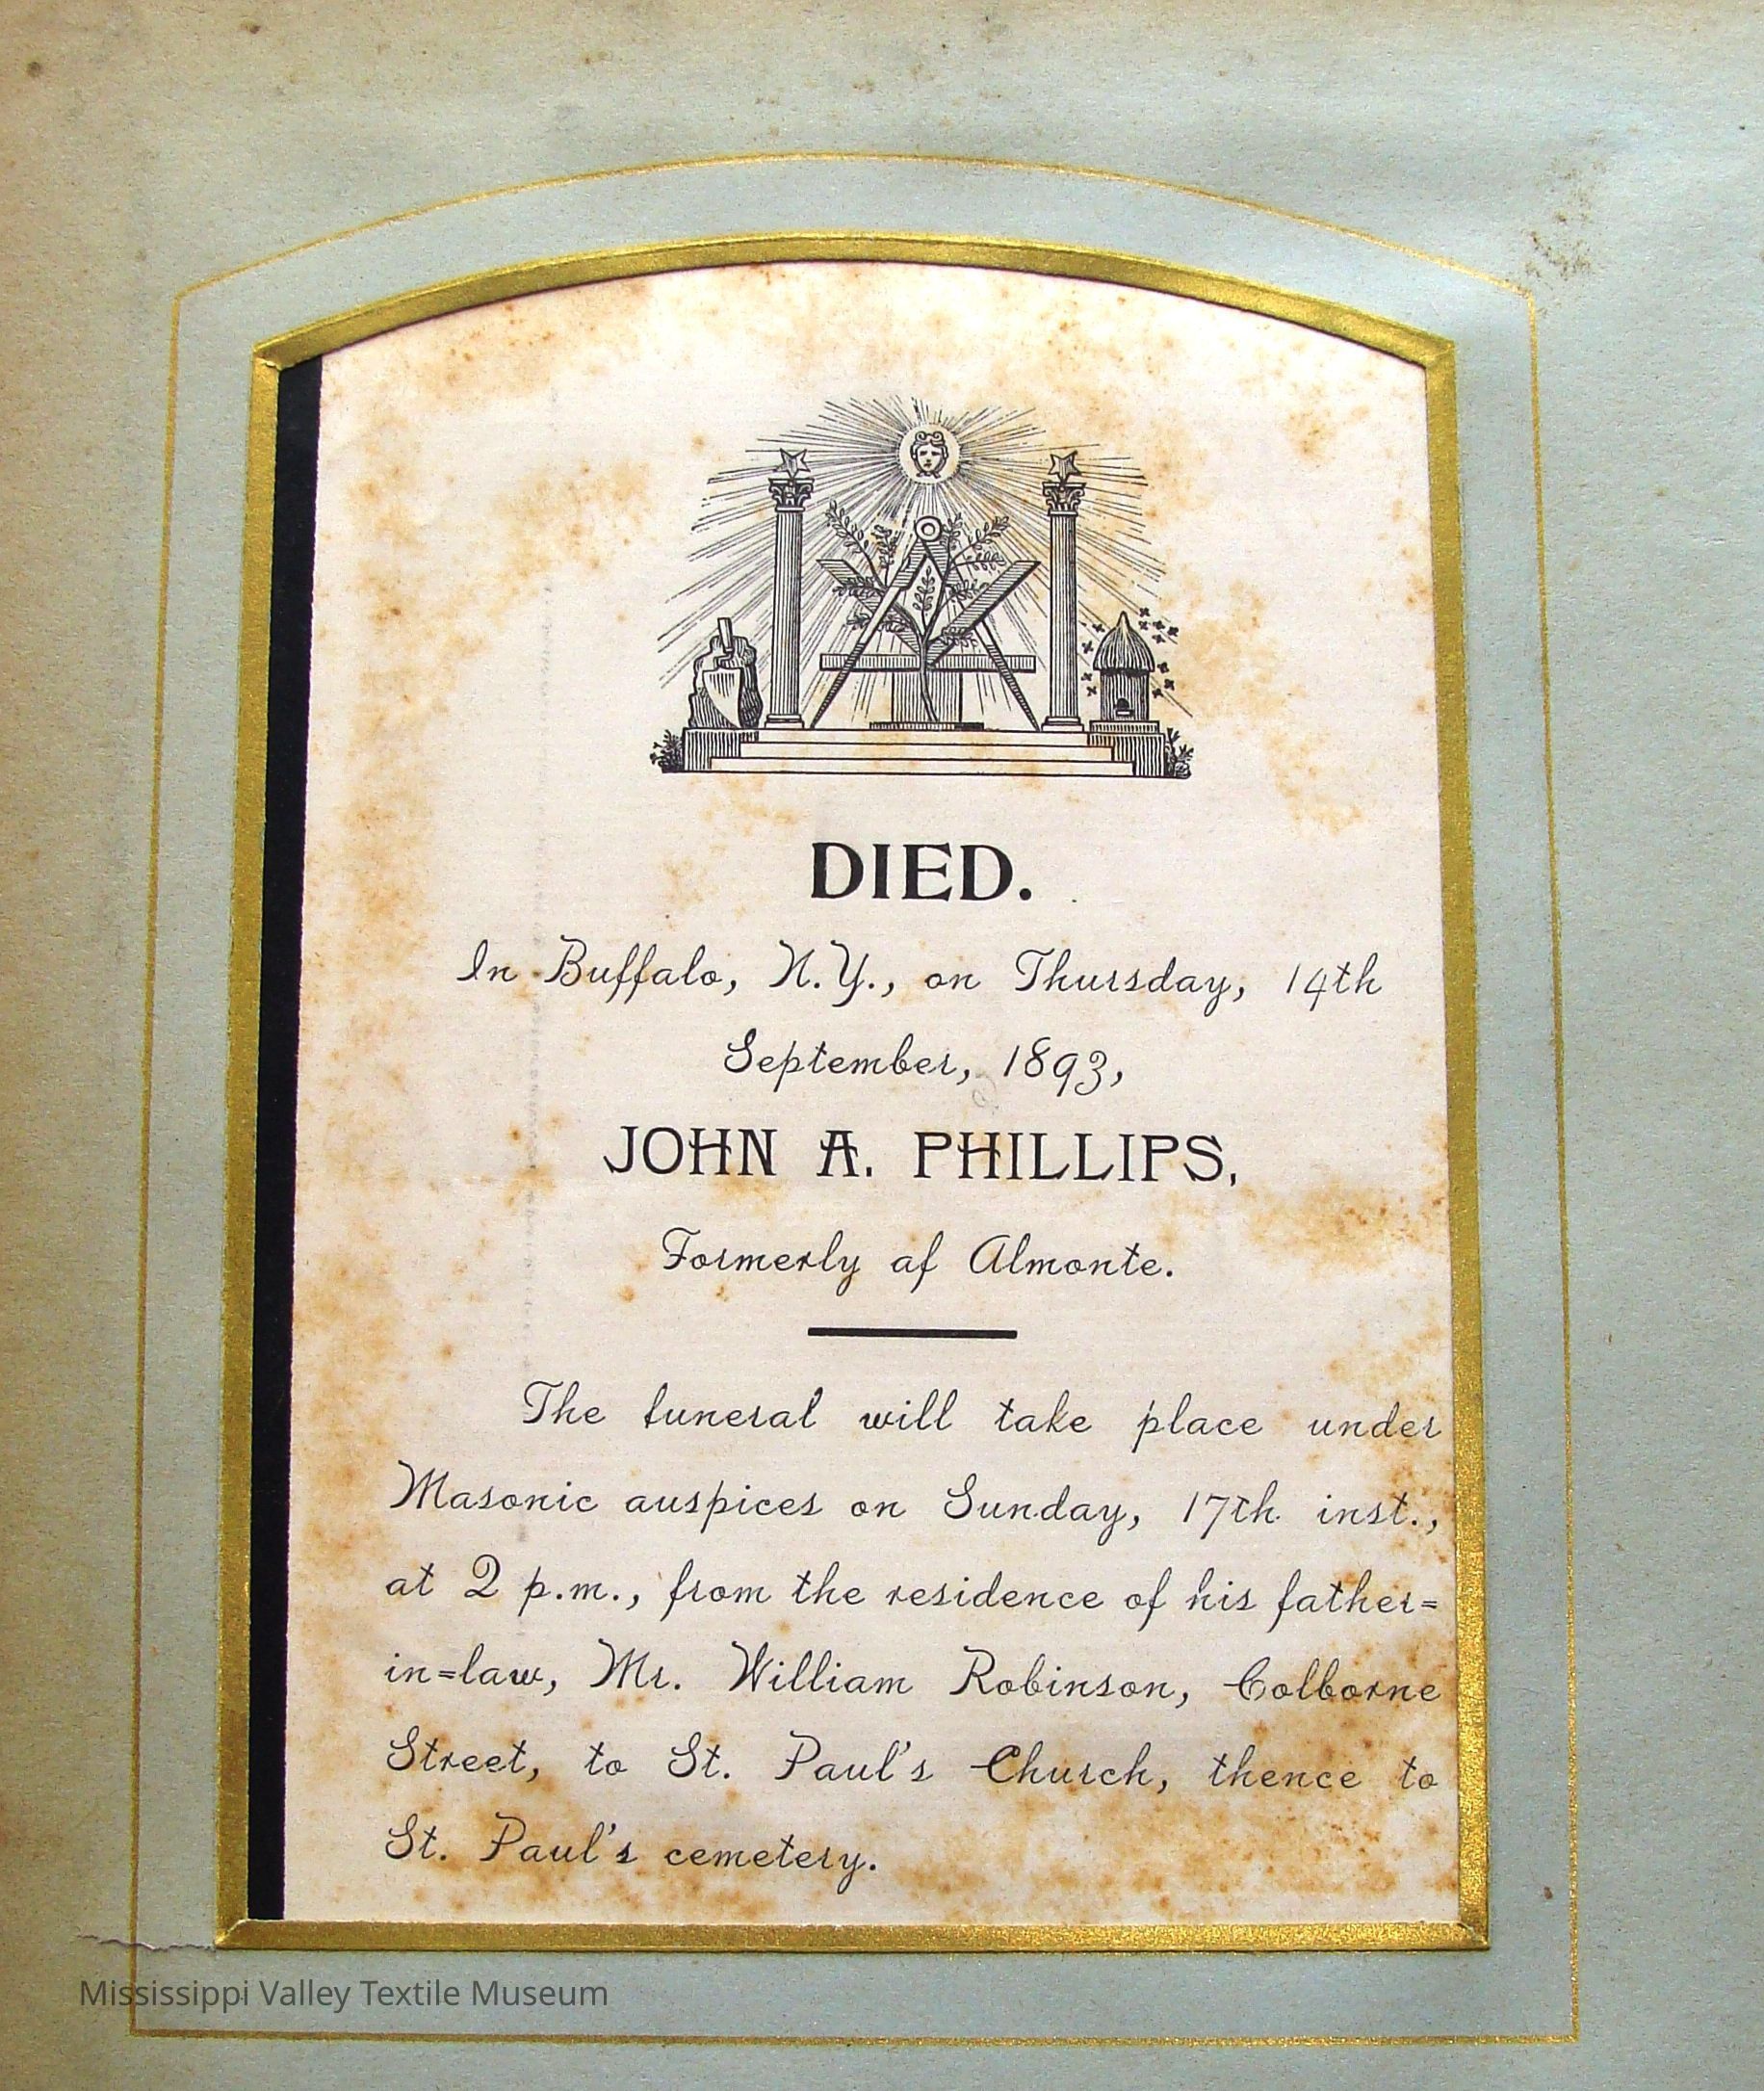 DIED.
In Buffalo, N.Y., on Thursday, 14th
September, 1893,
JOHN A. PHILLIPS,
Formerly af Almonte.
The funeral will take place under
Masonic auspices on Sunday, 17th inst.,
at 2 p.m., from the residence of his father=
in=law, Mr. William Robinson, Colborne
Street, to St. Paul's Church, thence to
St. Paul's cemetery.
Mississippi Valley Textile Museum